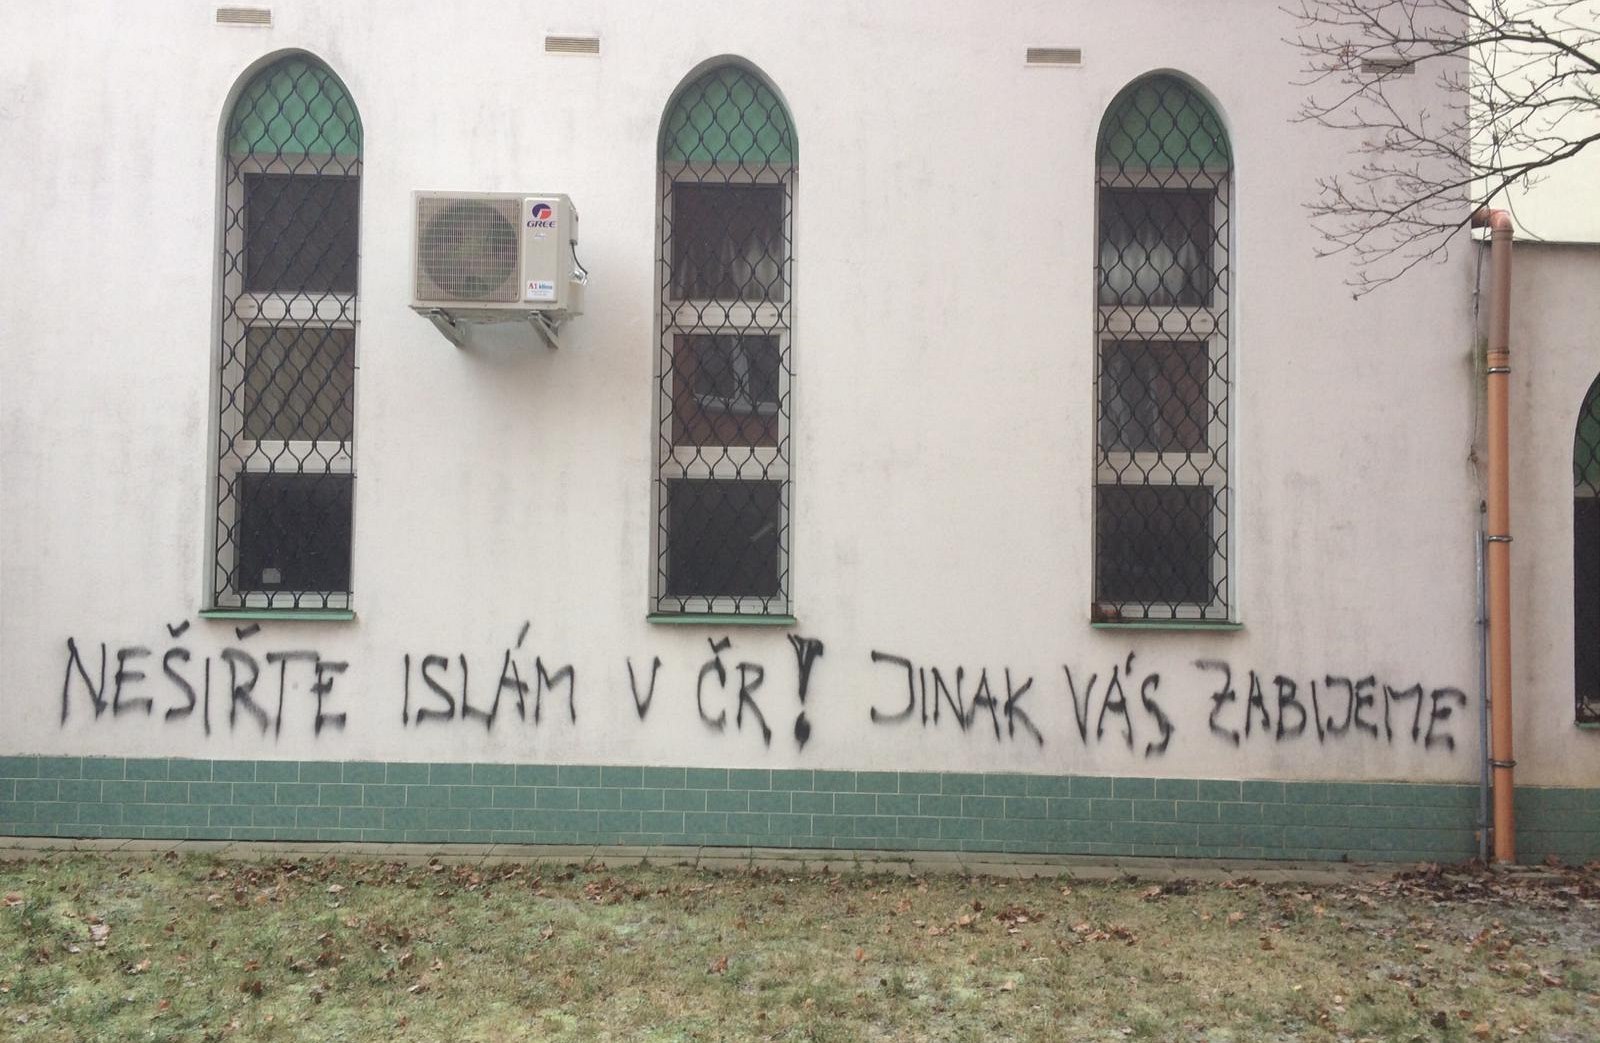 GREE
A1 klima
NEŠIŘTE ISLÁM V ČR! JINAK VÁS ZABIJEME